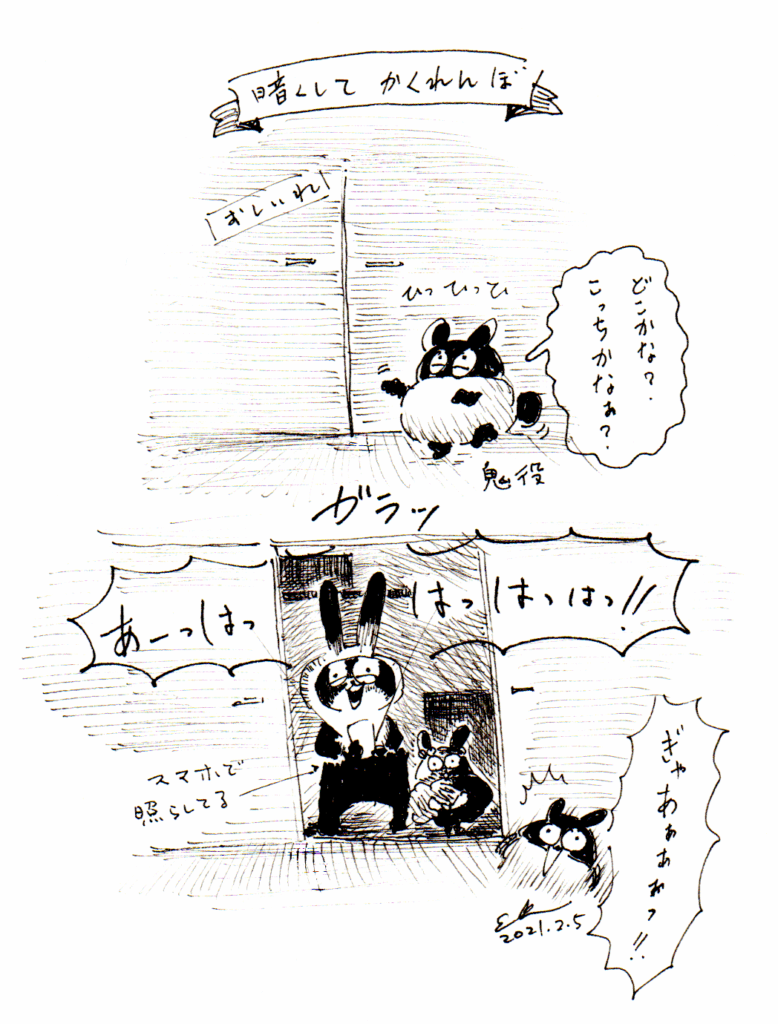 暗くして かくれんぼ
おしいれ
ひっひっひ
どこかな?
こっちかなぁ?
鬼役
ガラッ
あーっはっ
はっはっはっ!!
スマホで
照らしてる
ぎゃあぁぁぁっ!!
2021.2.5